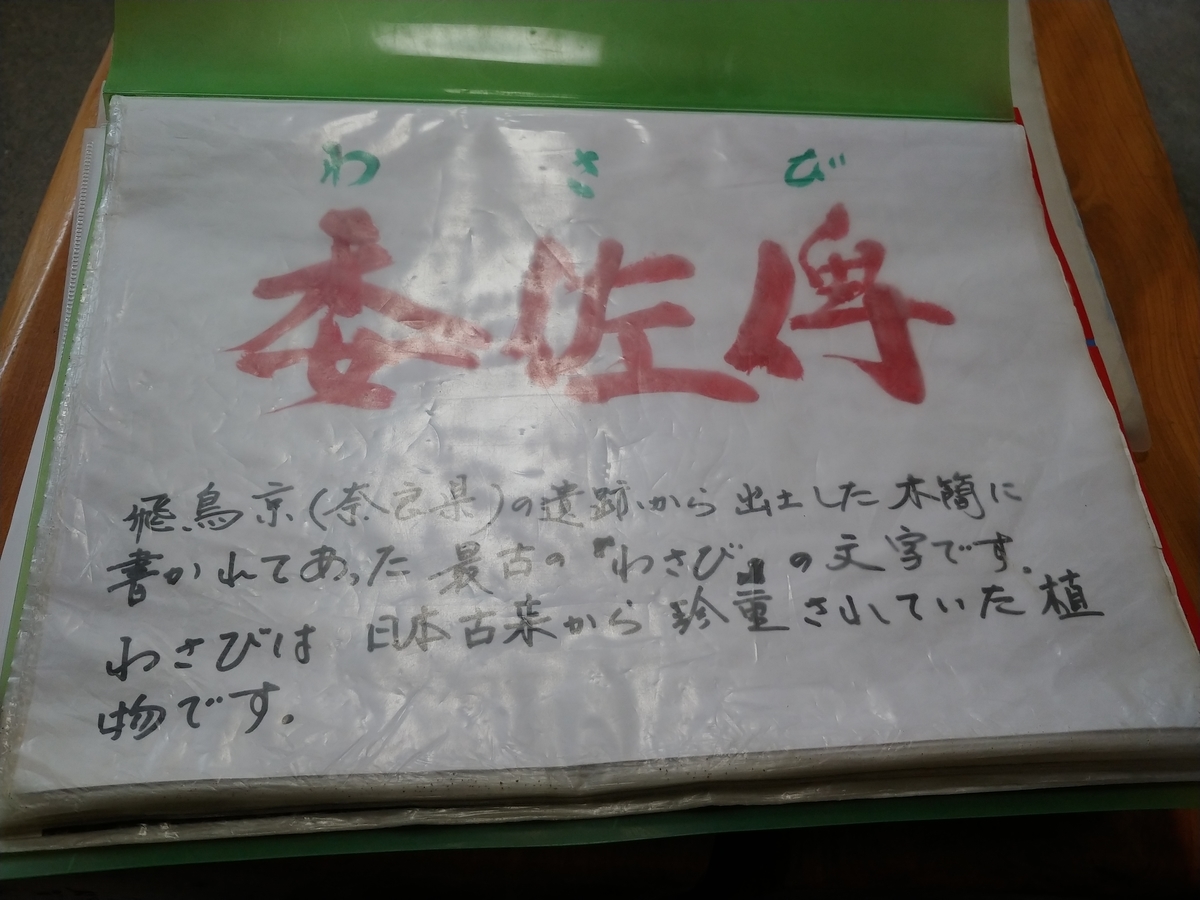 わさび
委佐俾
飛鳥京(奈良県)の遺跡から出土した木簡に
書かれてあった最古の『わさび』の文字です。
わさびは 日本古来から珍重されていた植
物です。